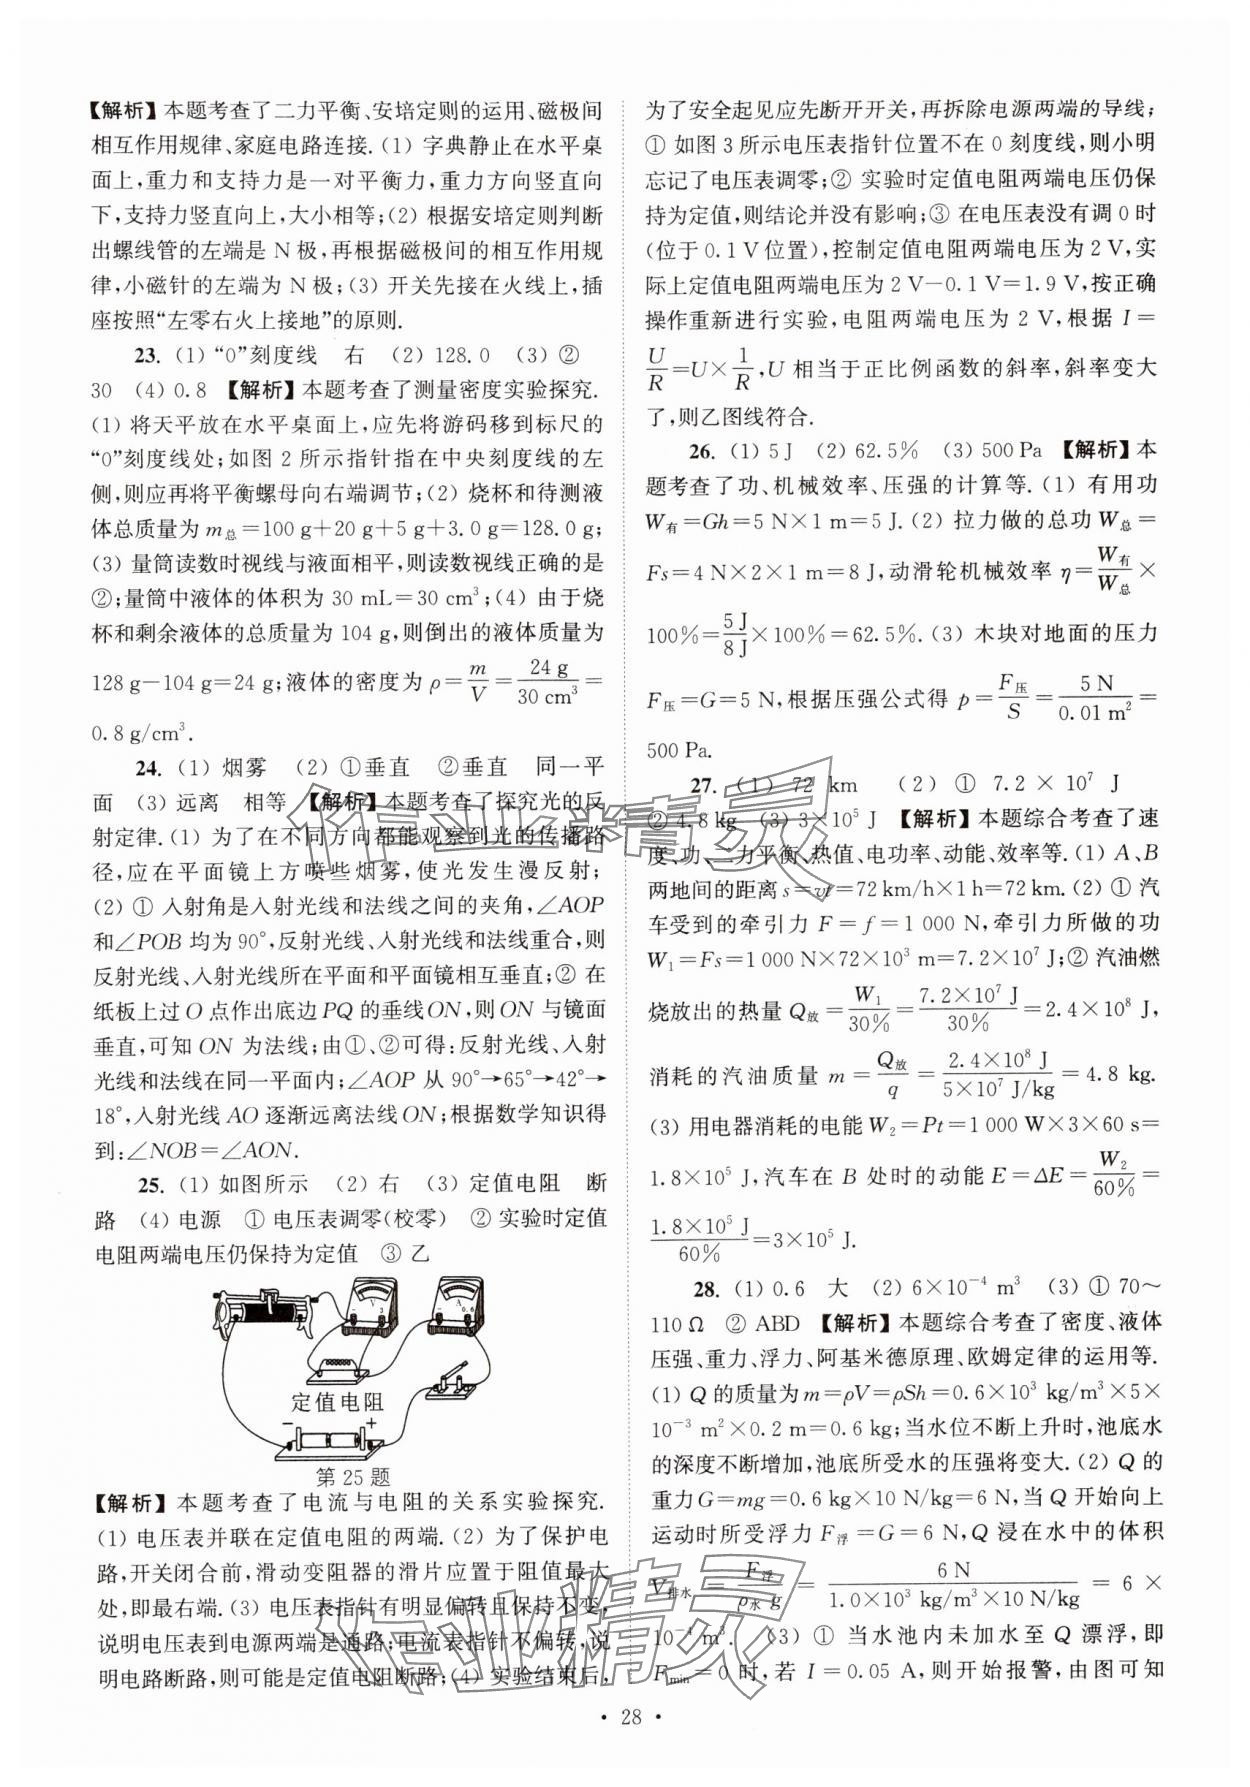 【解析】本题考查了二力平衡、安培定则的运用、磁极间
相互作用规律、家庭电路连接.(1) 字典静止在水平桌
面上,重力和支持力是一对平衡力,重力方向竖直向
下,支持力竖直向上,大小相等;(2) 根据安培定则判断
出螺线管的左端是 N 极,再根据磁极间的相互作用规
律,小磁针的左端为 N 极;(3) 开关先接在火线上,插
座按照“左零右火上接地”的原则.
23. (1) “0”刻度线 右 (2) 128.0 (3) ②
30 (4) 0.8 【解析】本题考查了测量密度实验探究.
(1) 将天平放在水平桌面上,应先将游码移到标尺的
“0”刻度线处;如图 2 所示指针指在中央刻度线的左
侧,则应再将平衡螺母向右端调节;(2) 烧杯和待测液
体总质量为 m总=100 g+20 g+5 g+3.0 g=128.0 g;
(3) 量筒读数时视线与液面相平,则读数视线正确的是
②;量筒中液体的体积为 30 mL=30 cm³;(4) 由于烧
杯和剩余液体的总质量为 104 g,则倒出的液体质量为
128 g-104 g=24 g;液体的密度为 ρ=m/V=24 g/30 cm³=
0.8 g/cm³.
24. (1) 烟雾 (2) ①垂直 ②垂直 同一平
面 (3) 远离 相等 【解析】本题考查了探究光的反
射定律.(1) 为了在不同方向都能观察到光的传播路
径,应在平面镜上方喷些烟雾,使光发生漫反射;
(2) ① 入射角是入射光线和法线之间的夹角,∠AOP
和∠POB 均为 90°,反射光线、入射光线和法线重合,则
反射光线、入射光线所在平面和平面镜相互垂直;② 在
纸板上过 O 点作出底边 PQ 的垂线 ON,则 ON 与镜面
垂直,可知 ON 为法线;由①、②可得:反射光线、入射
光线和法线在同一平面内;∠AOP 从 90°→65°→42°→
18°,入射光线 AO 逐渐远离法线 ON;根据数学知识得
到:∠NOB=∠AON.
25. (1) 如图所示 (2) 右 (3) 定值电阻 断
路 (4) 电源 ① 电压表调零(校零) ② 实验时定值
电阻两端电压仍保持为定值 ③ 乙
V 3
A 0.6
定值电阻
- +
第 25 题
【解析】本题考查了电流与电阻的关系实验探究.
(1) 电压表并联在定值电阻的两端.(2) 为了保护电
路,开关闭合前,滑动变阻器的滑片应置于阻值最大
处,即最右端.(3) 电压表指针有明显偏转且保持不变,
说明电压表到电源两端是通路;电流表指针不偏转,说
明电路断路,则可能是定值电阻断路;(4) 实验结束后,
为了安全起见应先断开开关,再拆除电源两端的导线;
① 如图 3 所示电压表指针位置不在 0 刻度线,则小明
忘记了电压表调零;② 实验时定值电阻两端电压仍保
持为定值,则结论并没有影响;③ 在电压表没有调 0 时
(位于 0.1 V 位置),控制定值电阻两端电压为 2 V,实
际上定值电阻两端电压为 2 V-0.1 V=1.9 V,按正确
操作重新进行实验,电阻两端电压为 2 V,根据 I=
U/R=U×1/R,U 相当于正比例函数的斜率,斜率变大
了,则乙图线符合.
26. (1) 5 J (2) 62.5% (3) 500 Pa 【解析】本
题考查了功、机械效率、压强的计算等.(1) 有用功
W有=Gh=5 N×1 m=5 J.(2) 拉力做的总功 W总=
Fs=4 N×2×1 m=8 J,动滑轮机械效率 η=W有/W总×
100%=5 J/8 J×100%=62.5%.(3) 木块对地面的压力
F压=G=5 N,根据压强公式得 p=F压/S=5 N/0.01 m²=
500 Pa.
27. (1) 72 km (2) ① 7.2×10⁷ J
② 4.8 kg (3) 3×10⁵ J 【解析】本题综合考查了速
度、功、二力平衡、热值、电功率、动能、效率等.(1) A、B
两地间的距离 s=vt=72 km/h×1 h=72 km.(2) ① 汽
车受到的牵引力 F=f=1 000 N,牵引力所做的功
W₁=Fs=1 000 N×72×10³ m=7.2×10⁷ J;② 汽油燃
烧放出的热量 Q放=W₁/30%=7.2×10⁷ J/30%=2.4×10⁸ J,
消耗的汽油质量 m=Q放/q=2.4×10⁸ J/5×10⁷ J/kg=4.8 kg.
(3) 用电器消耗的电能 W₂=Pt=1 000 W×3×60 s=
1.8×10⁵ J,汽车在 B 处时的动能 E=ΔE=W₂/60%=
1.8×10⁵ J/60%=3×10⁵ J.
28. (1) 0.6 大 (2) 6×10⁻⁴ m³ (3) ① 70~
110 Ω ② ABD 【解析】本题综合考查了密度、液体
压强、重力、浮力、阿基米德原理、欧姆定律的运用等.
(1) Q 的质量为 m=ρV=ρSh=0.6×10³ kg/m³×5×
10⁻³ m²×0.2 m=0.6 kg;当水位不断上升时,池底水
的深度不断增加,池底所受水的压强将变大.(2) Q 的
重力 G=mg=0.6 kg×10 N/kg=6 N,当 Q 开始向上
运动时所受浮力 F浮=G=6 N,Q 浸在水中的体积
V排水=F浮/ρ水g=6 N/1.0×10³ kg/m³×10 N/kg=6×
10⁻⁴ m³. (3) ① 当水池内未加水至 Q 漂浮,即
Fmin=0 时,若 I=0.05 A,则开始报警,由图可知
• 28 •
作业精灵
作业精灵